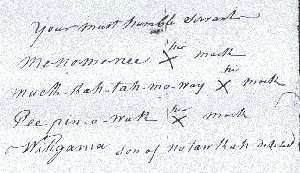 Your most humble Servant
Menomonee his X mark
much-kah-tah-mo-way his X mark
Pee-pin-o-wah his X mark
Wingania son of notawkah